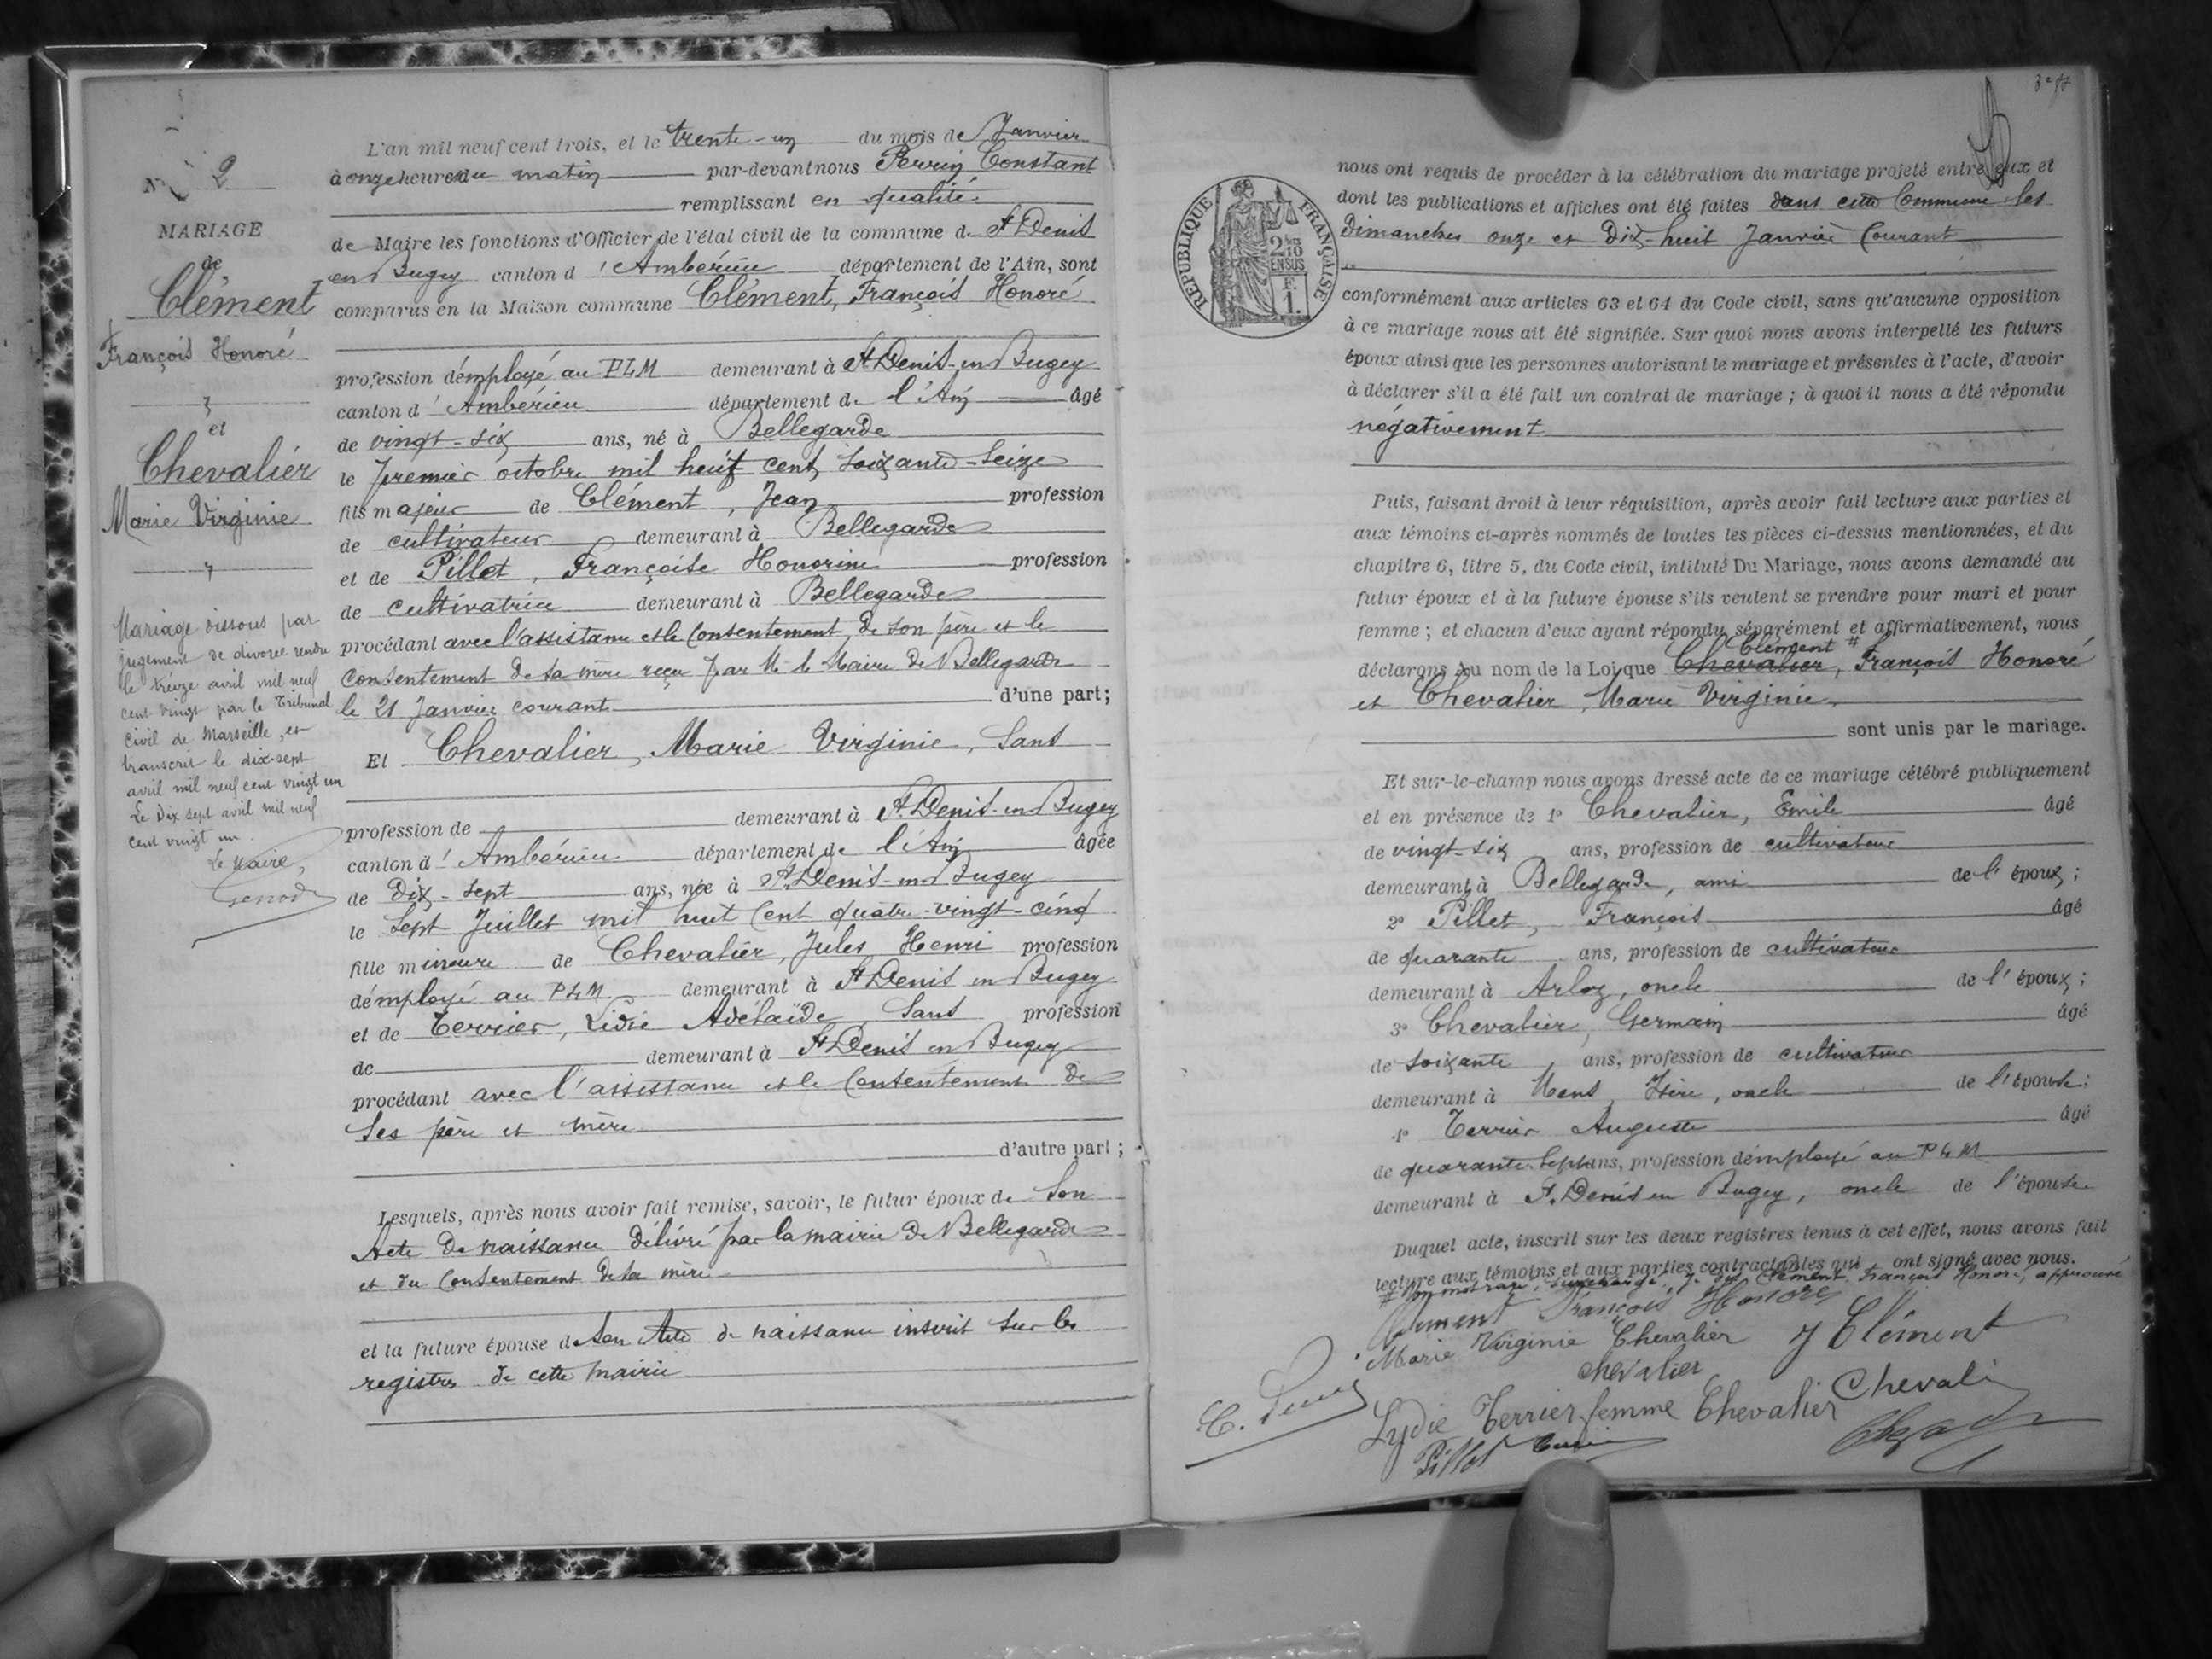 N° 2
MARIAGE
de
Clément
François Honoré
et
Chevalier
Marie Virginie
Mariage dissous par
jugement de divorce rendu
le treize avril mil neuf
cent vingt par le Tribunal
Civil de Marseille, et
transcrit le dix-sept
avril mil neuf cent vingt un
Le Dix sept avril mil neuf
cent vingt un
Le Maire,
L'an mil neuf cent trois, et le trente-un du mois de Janvier
à onze heures du matin par-devant nous Perrin Constant
remplissant en qualité
de Maire les fonctions d'Officier de l'état civil de la commune de St Denis
en Bugey canton d'Ambérieu département de l'Ain, sont
comparus en la Maison commune Clément, François Honoré
profession d'employé au PLM demeurant à St Denis-en-Bugey
canton d'Ambérieu département de l'Ain âgé
de vingt-six ans, né à Bellegarde
le premier octobre mil huit cent soixante-seize
fils majeur de Clément, Jean profession
de cultivateur demeurant à Bellegarde
et de Pillet, Françoise Honorine profession
de cultivatrice demeurant à Bellegarde
procédant avec l'assistance et le Consentement de son père et le
Consentement de sa mère reçu par M. le Maire de Bellegarde
le 21 Janvier courant d'une part;
Et Chevalier, Marie Virginie, Sans
profession de demeurant à St Denis-en-Bugey
canton d'Ambérieu département de l'Ain âgée
de Dix-sept ans, née à St Denis-en-Bugey
le Sept Juillet mil huit Cent quatre-vingt-cinq
fille mineure de Chevalier, Jules Henri profession
d'employé au PLM demeurant à St Denis en Bugey
et de Terrier, Lidie Adélaïde, Sans profession
de demeurant à St Denis en Bugey
procédant avec l'assistance et le Consentement de
Ses père et mère
d'autre part;
Lesquels, après nous avoir fait remise, savoir, le futur époux de Son
Acte de naissance délivré par la mairie de Bellegarde
et du Consentement de sa mère
et la future épouse de Son Acte de naissance inscrit sur les
registres de cette mairie
nous ont requis de procéder à la célébration du mariage projeté entre eux et
dont les publications et affiches ont été faites dans cette Commune les
Dimanches onze et Dix-huit Janvier Courant
RÉPUBLIQUE FRANÇAISE
2/10
EN SUS
F.
1.
conformément aux articles 63 et 64 du Code civil, sans qu'aucune opposition
à ce mariage nous ait été signifiée. Sur quoi nous avons interpellé les futurs
époux ainsi que les personnes autorisant le mariage et présentes à l'acte, d'avoir
à déclarer s'il a été fait un contrat de mariage ; à quoi il nous a été répondu
négativement
Puis, faisant droit à leur réquisition, après avoir fait lecture aux parties et
aux témoins ci-après nommés de toutes les pièces ci-dessus mentionnées, et du
chapitre 6, titre 5, du Code civil, intitulé Du Mariage, nous avons demandé au
futur époux et à la future épouse s'ils veulent se prendre pour mari et pour
femme ; et chacun d'eux ayant répondu séparément et affirmativement, nous
Clément #
déclarons au nom de la Loi que Chevalier, François Honoré
et Chevalier, Marie Virginie
sont unis par le mariage.
Et sur-le-champ nous avons dressé acte de ce mariage célébré publiquement
et en présence de 1° Chevalier, Emile âgé
de vingt-six ans, profession de cultivateur
demeurant à Bellegarde, ami de l'époux ;
2° Pillet, François âgé
de quarante ans, profession de cultivateur
demeurant à Arloz, oncle de l'époux ;
3° Chevalier, Germain âgé
de soixante ans, profession de cultivateur
demeurant à Mens, Isère, oncle de l'épouse;
4° Terrier Auguste âgé
de quarante-sept ans, profession d'employé au PLM
demeurant à St Denis en Bugey, oncle de l'épouse
Duquel acte, inscrit sur les deux registres tenus à cet effet, nous avons fait
lecture aux témoins et aux parties contractantes qui ont signé avec nous.
# Un mot rayé, surchargé, Clément François Honoré, approuvé
Clément François Honoré
Marie Virginie Chevalier J Clément
Chevalier
Lydie Terrier femme Chevalier Chevali
Pillet